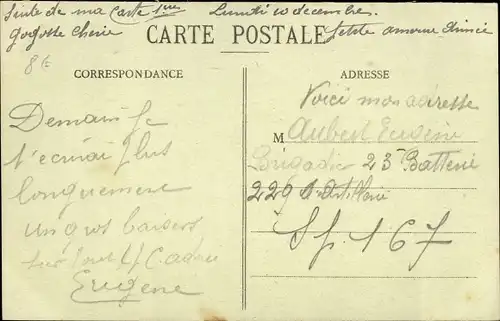 Suite de ma Carte 1ere Lundi 10 decembre.
gogotte cherie petite amour
CARTE POSTALE
8 te
CORRESPONDANCE
Demain Je
t'ecrirai plus
longuement
un gros baiser
sur
Eugene
ADRESSE
Voici mon adresse
M Aubert Eugène
Brigadier 23e Batterie
229 d'artillerie
S.p. 167